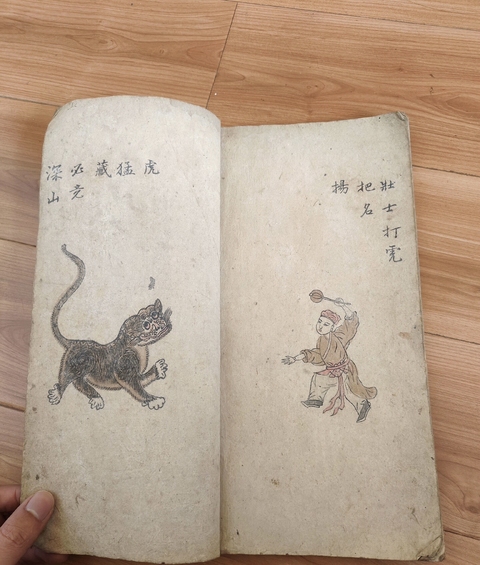 深山
必竟
藏
猛
虎
壯士打虎
把名
揚